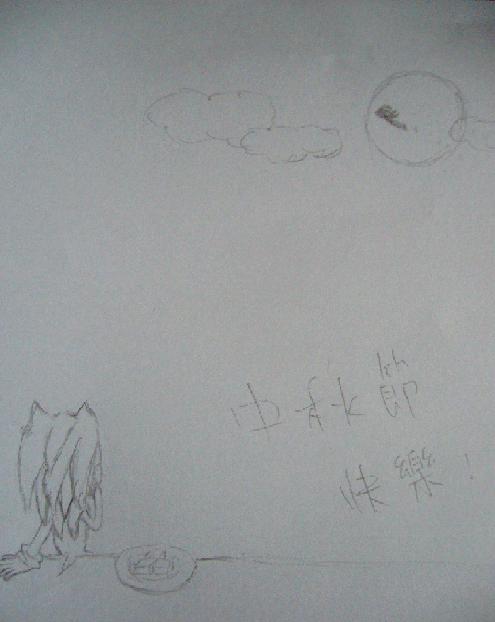 中秋節
快樂！